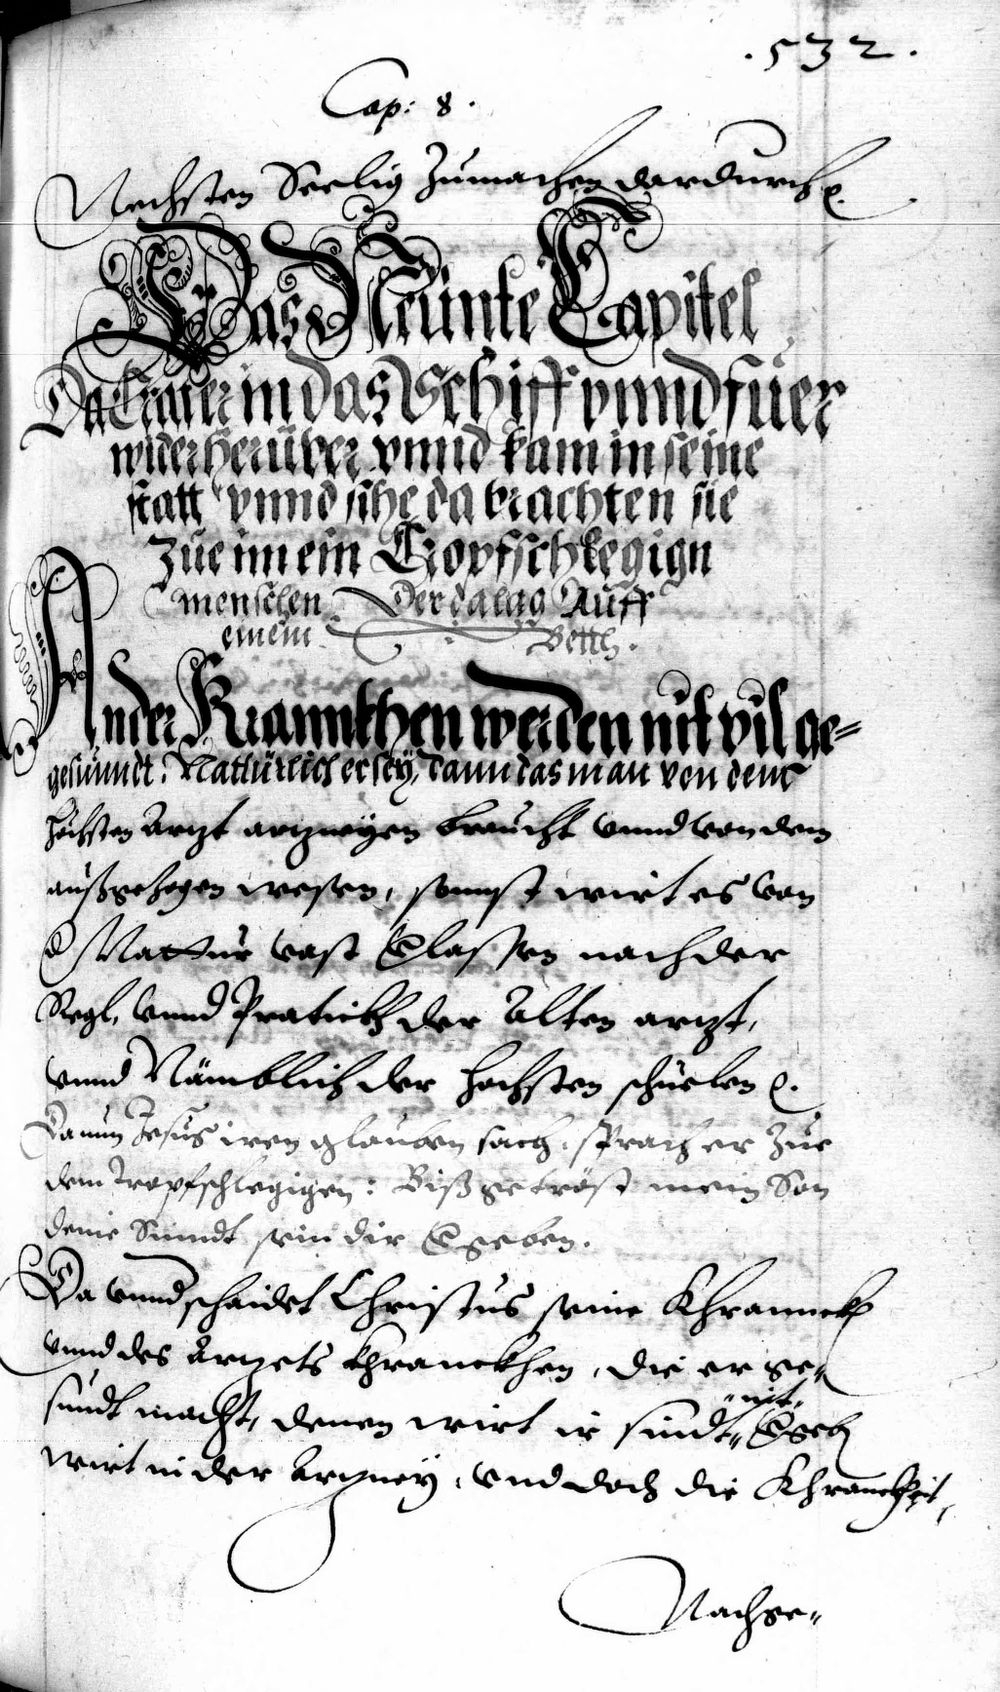 .532.
Cap: 8.
Nechsten Seelig Zumachen dardurch
Das Neunte Capitel
Da trat er in das Schiff vnnd fuer
wider herüber vnnd kam in seine
statt vnnd sihe da brachten sie
Zue im ein Tropfschlegign
menschen Der da lag Auff
einem Betth.
Ander Krannkhen werden nit vil ge=
gesunndt. Natürlich er sey, dann das man von dem
höchsten Arzt arzneyen braucht vnnd von dem
außgezogen wesen, sonnst wirt es von
d Nattur vast Elassen nach der
Regl, vnnd Pratickh der Alten arzt,
vnnd Nämblich der hochsten schuelen
Da nun Jesus iren glauben sach, sprach er Zue
dem tropfschlegigen: Biß getröst mein Son
deine Sinndt sein dir Egeben.
Da vnndschaidet Christus seine Khrannck
vnnd des Arzets khranckhen, die er ge=
sundt macht, denen wirt ir sündt nit Egeb
wirt in der Arzney, vnd doch die Khranckheit,
Nachge=